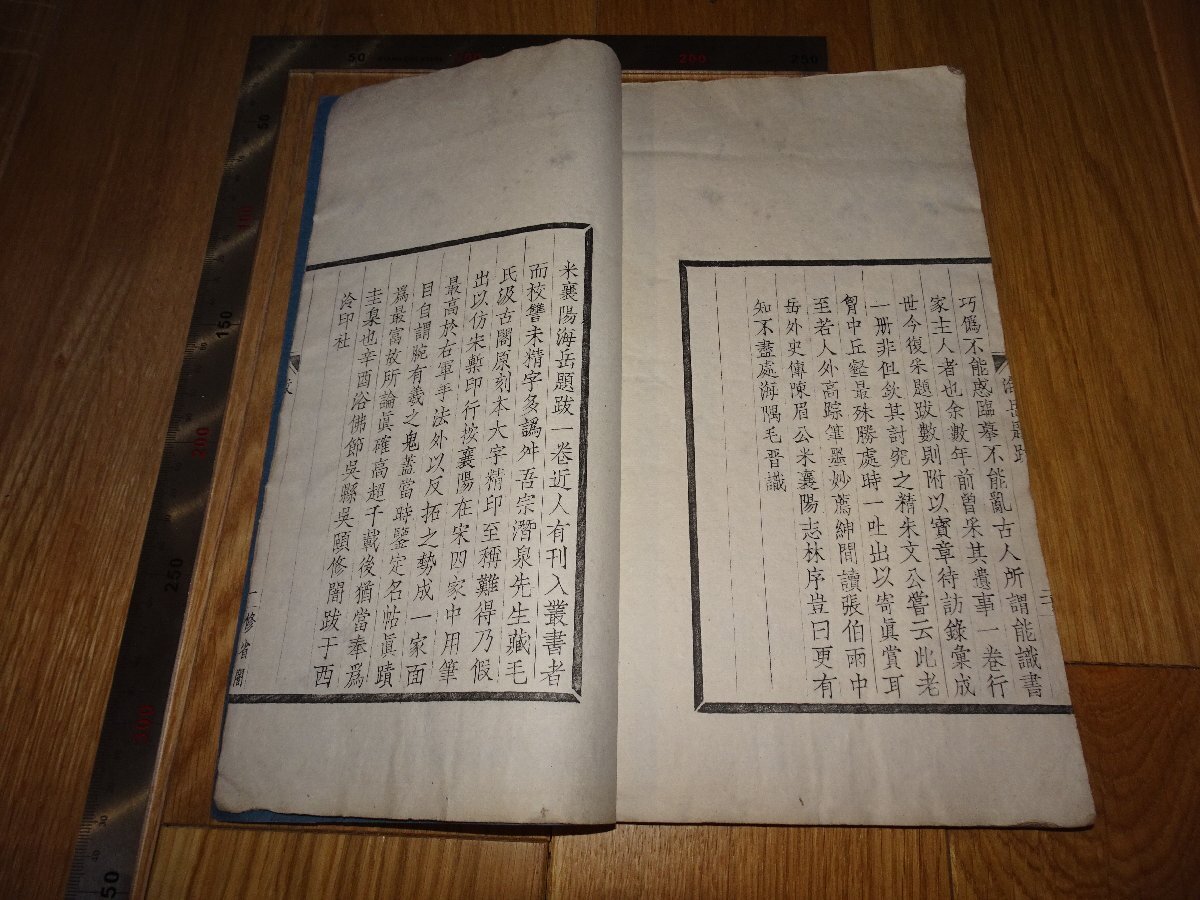 巧僞不能惑臨摹不能亂古人所謂能識書
家主人者也余數年前曾采其遺事一卷行
世今復采題跋數則附以寶章待訪錄彙成
一册非但欽其討究之精朱文公嘗云此老
胷中丘壑最殊勝處時一吐出以寄眞賞耳
至若人外高踪筆墨妙薦紳間讀張伯雨中
岳外史傳陳眉公米襄陽志林序豈曰更有
知不盡處海隅毛晉識
海岳題跋
米襄陽海岳題跋一卷近人有刊入叢書者
而校讐未精字多譌舛吾宗潛泉先生藏毛
氏汲古閣原刻本大字精印至稱難得乃假
出以仿朱槧印行按襄陽在宋四家中用筆
最高於右軍手法外以反拓之勢成一家面
目自謂腕有羲之鬼蓋當時鑒定名帖眞蹟
爲最富故所論眞確高超千載後猶當奉爲
圭臬也辛酉浴佛節吳縣吳頤修闇跋于西
泠印社
跋
修省闇
50
200
250
50
150
200
250
300